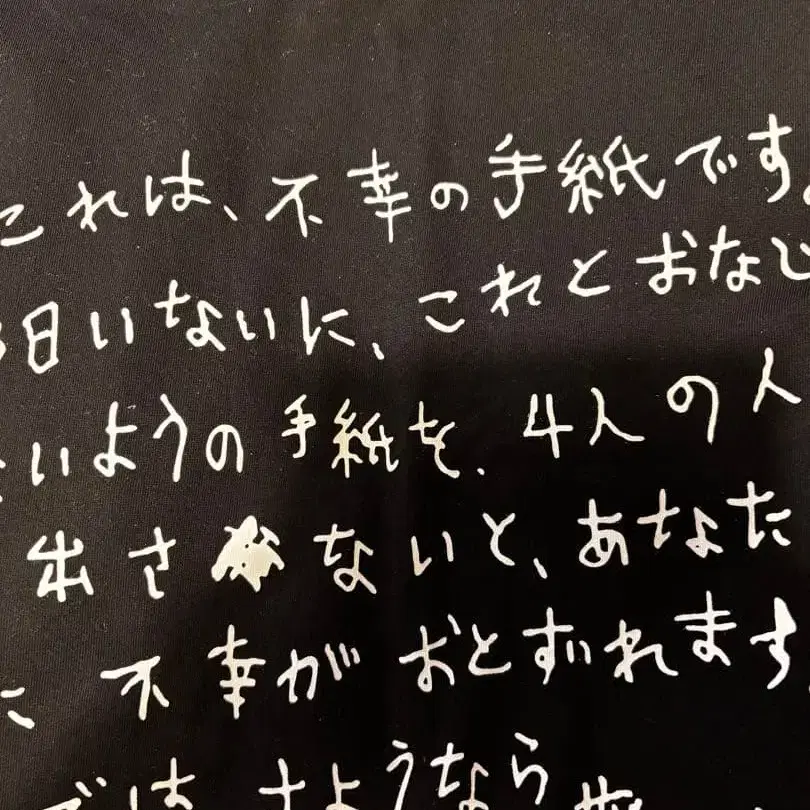 これは、不幸の手紙です。
日いないに、これとおなじ
いようの手紙を、4人の人
出さないと、あなた
に不幸がおとずれます
では、さようなら